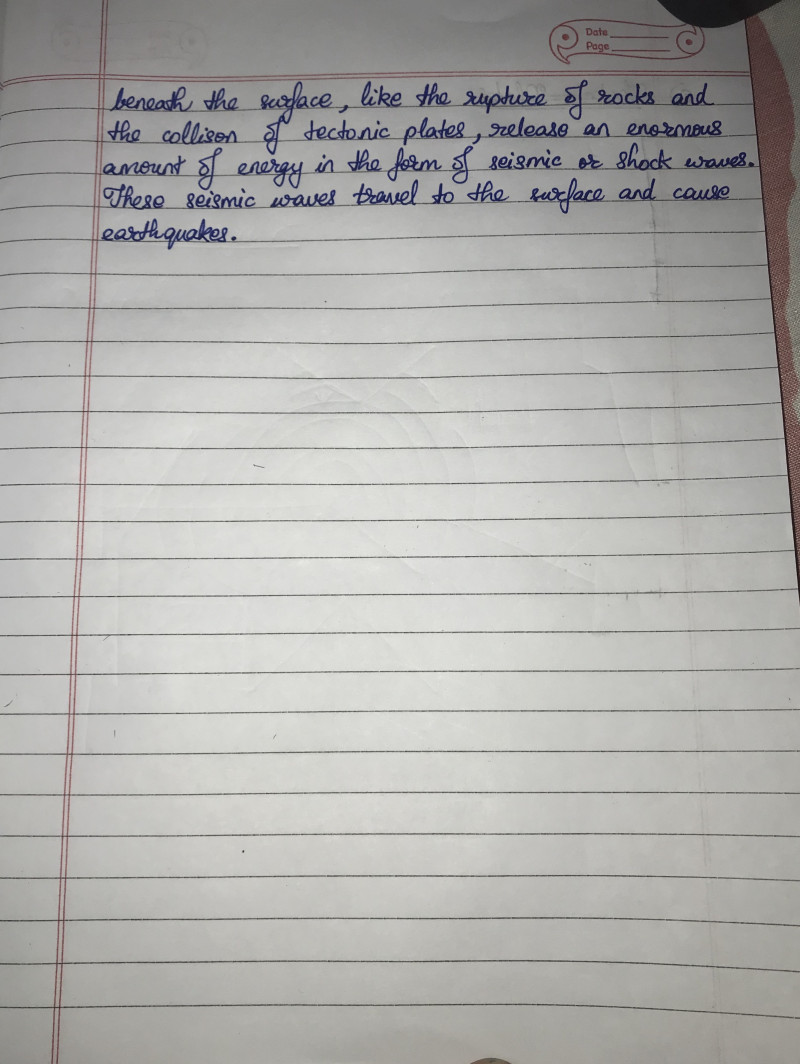 Date
Page
beneath the surface, like the rupture of rocks and
the collison of tectonic plates, release an enormous
amount of energy in the form of seismic or shock waves.
These seismic waves travel to the surface and cause
earthquakes.